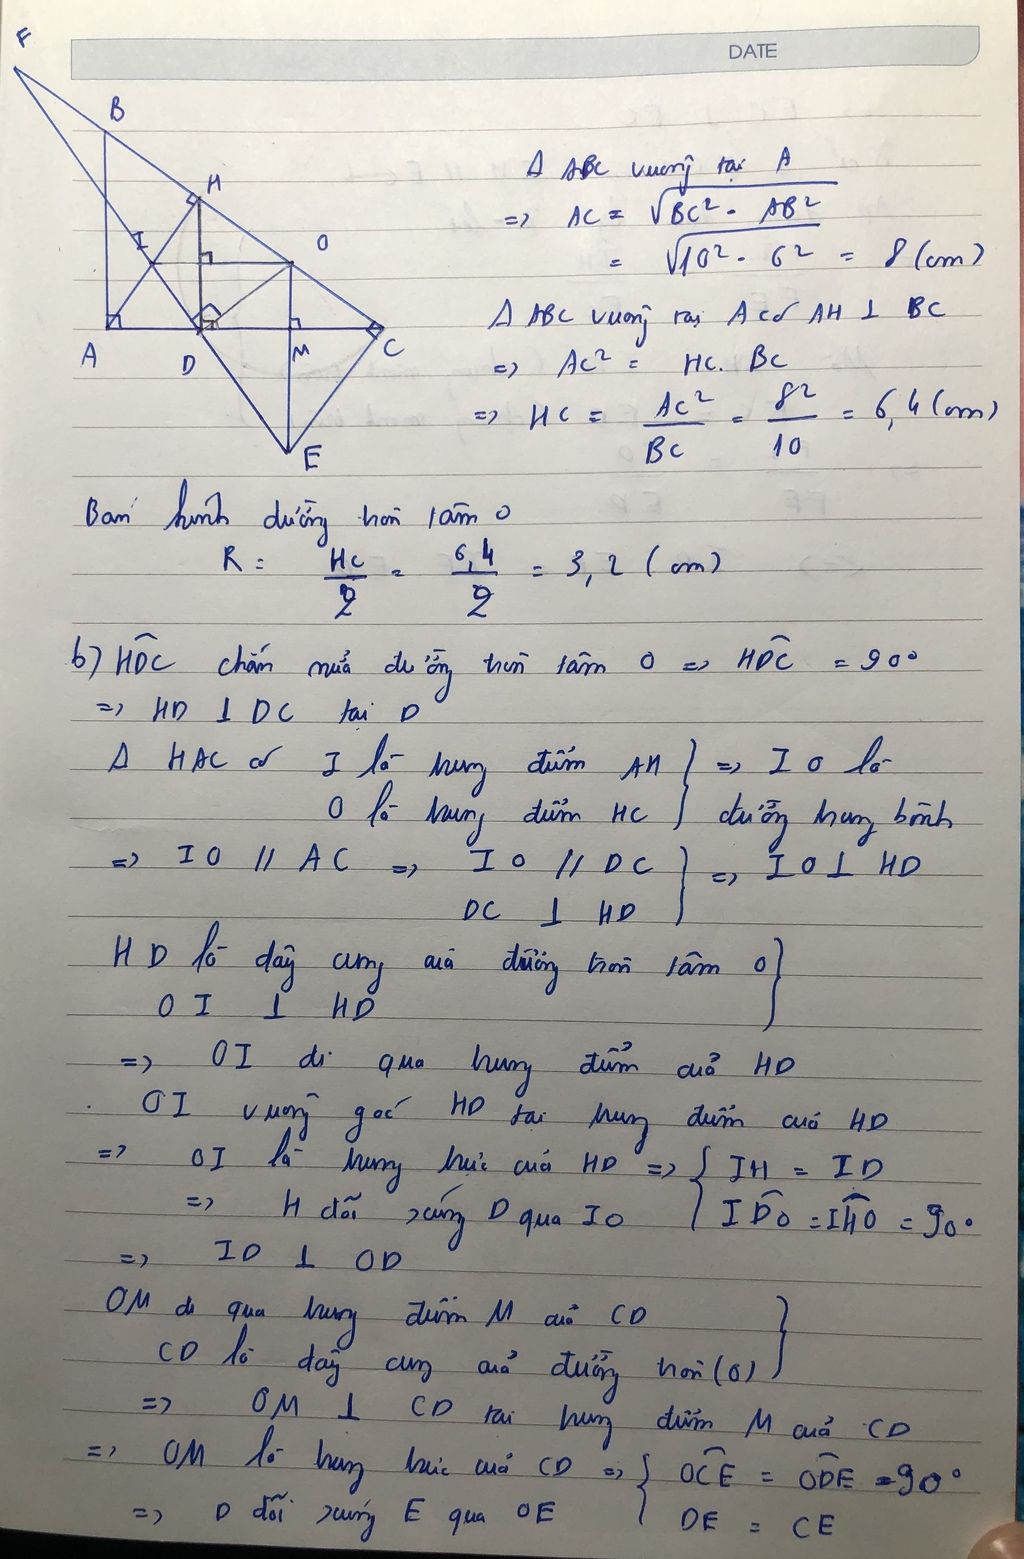 DATE
F
B
H
I
O
A
D
M
C
E
Δ ABC vuông tại A
=> AC = √BC² - AB²
= √10² - 6² = 8 (cm)
Δ ABC vuông tại A có AH ⊥ BC
=> AC² = HC. BC
=> HC = AC²/BC = 8²/10 = 6,4 (cm)
Bán kính đường tròn tâm O
R = HC/2 = 6,4/2 = 3,2 (cm)
b) HDC chắn nửa đường tròn tâm O => HDC = 90°
=> HD ⊥ DC tại D
Δ HAC có I là trung điểm AH } => IO là
O là trung điểm HC } đường trung bình
=> IO // AC => IO // DC } => IO ⊥ HD
DC ⊥ HD }
HD là dây cung của đường tròn tâm O }
OI ⊥ HD }
=> OI đi qua trung điểm của HD
OI vuông góc HD tại trung điểm của HD
=> OI là trung trực của HD => { IH = ID
=> H đối xứng D qua IO { IDO = IHO = 90°
=> ID ⊥ OD
OM đi qua trung điểm M của CD }
CD là dây cung của đường tròn (O) }
=> OM ⊥ CD tại trung điểm M của CD
=> OM là trung trực của CD => { OCE = ODE = 90°
=> D đối xứng E qua OE { DE = CE